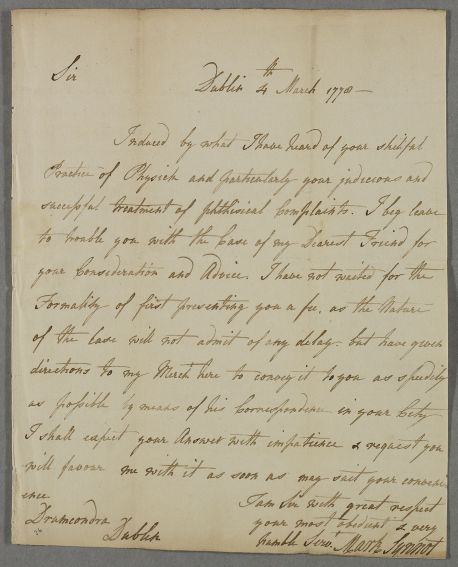 Sir
Dublin 4th March 1778 —
Induced by what I have heard of your skilful
Practice of Physick and particularly your judicious and
successful treatment of phthisical Complaints. I beg leave
to trouble you with the Case of my Dearest Friend for
your Consideration and Advice. I have not waited for the
Formality of first presenting you a fee, as the Nature
of the Case will not admit of any delay. but have given
directions to my Mercht here to convey it to you as speedily
as possible by means of his Correspondence in your City
I shall expect your Answer with impatience & request you
will favour me with it as soon as may suit your conveni
ence.
I am Sir with great respect
your most obedient & very
humble Servt Mark Synnot
Drumcondra
Dublin